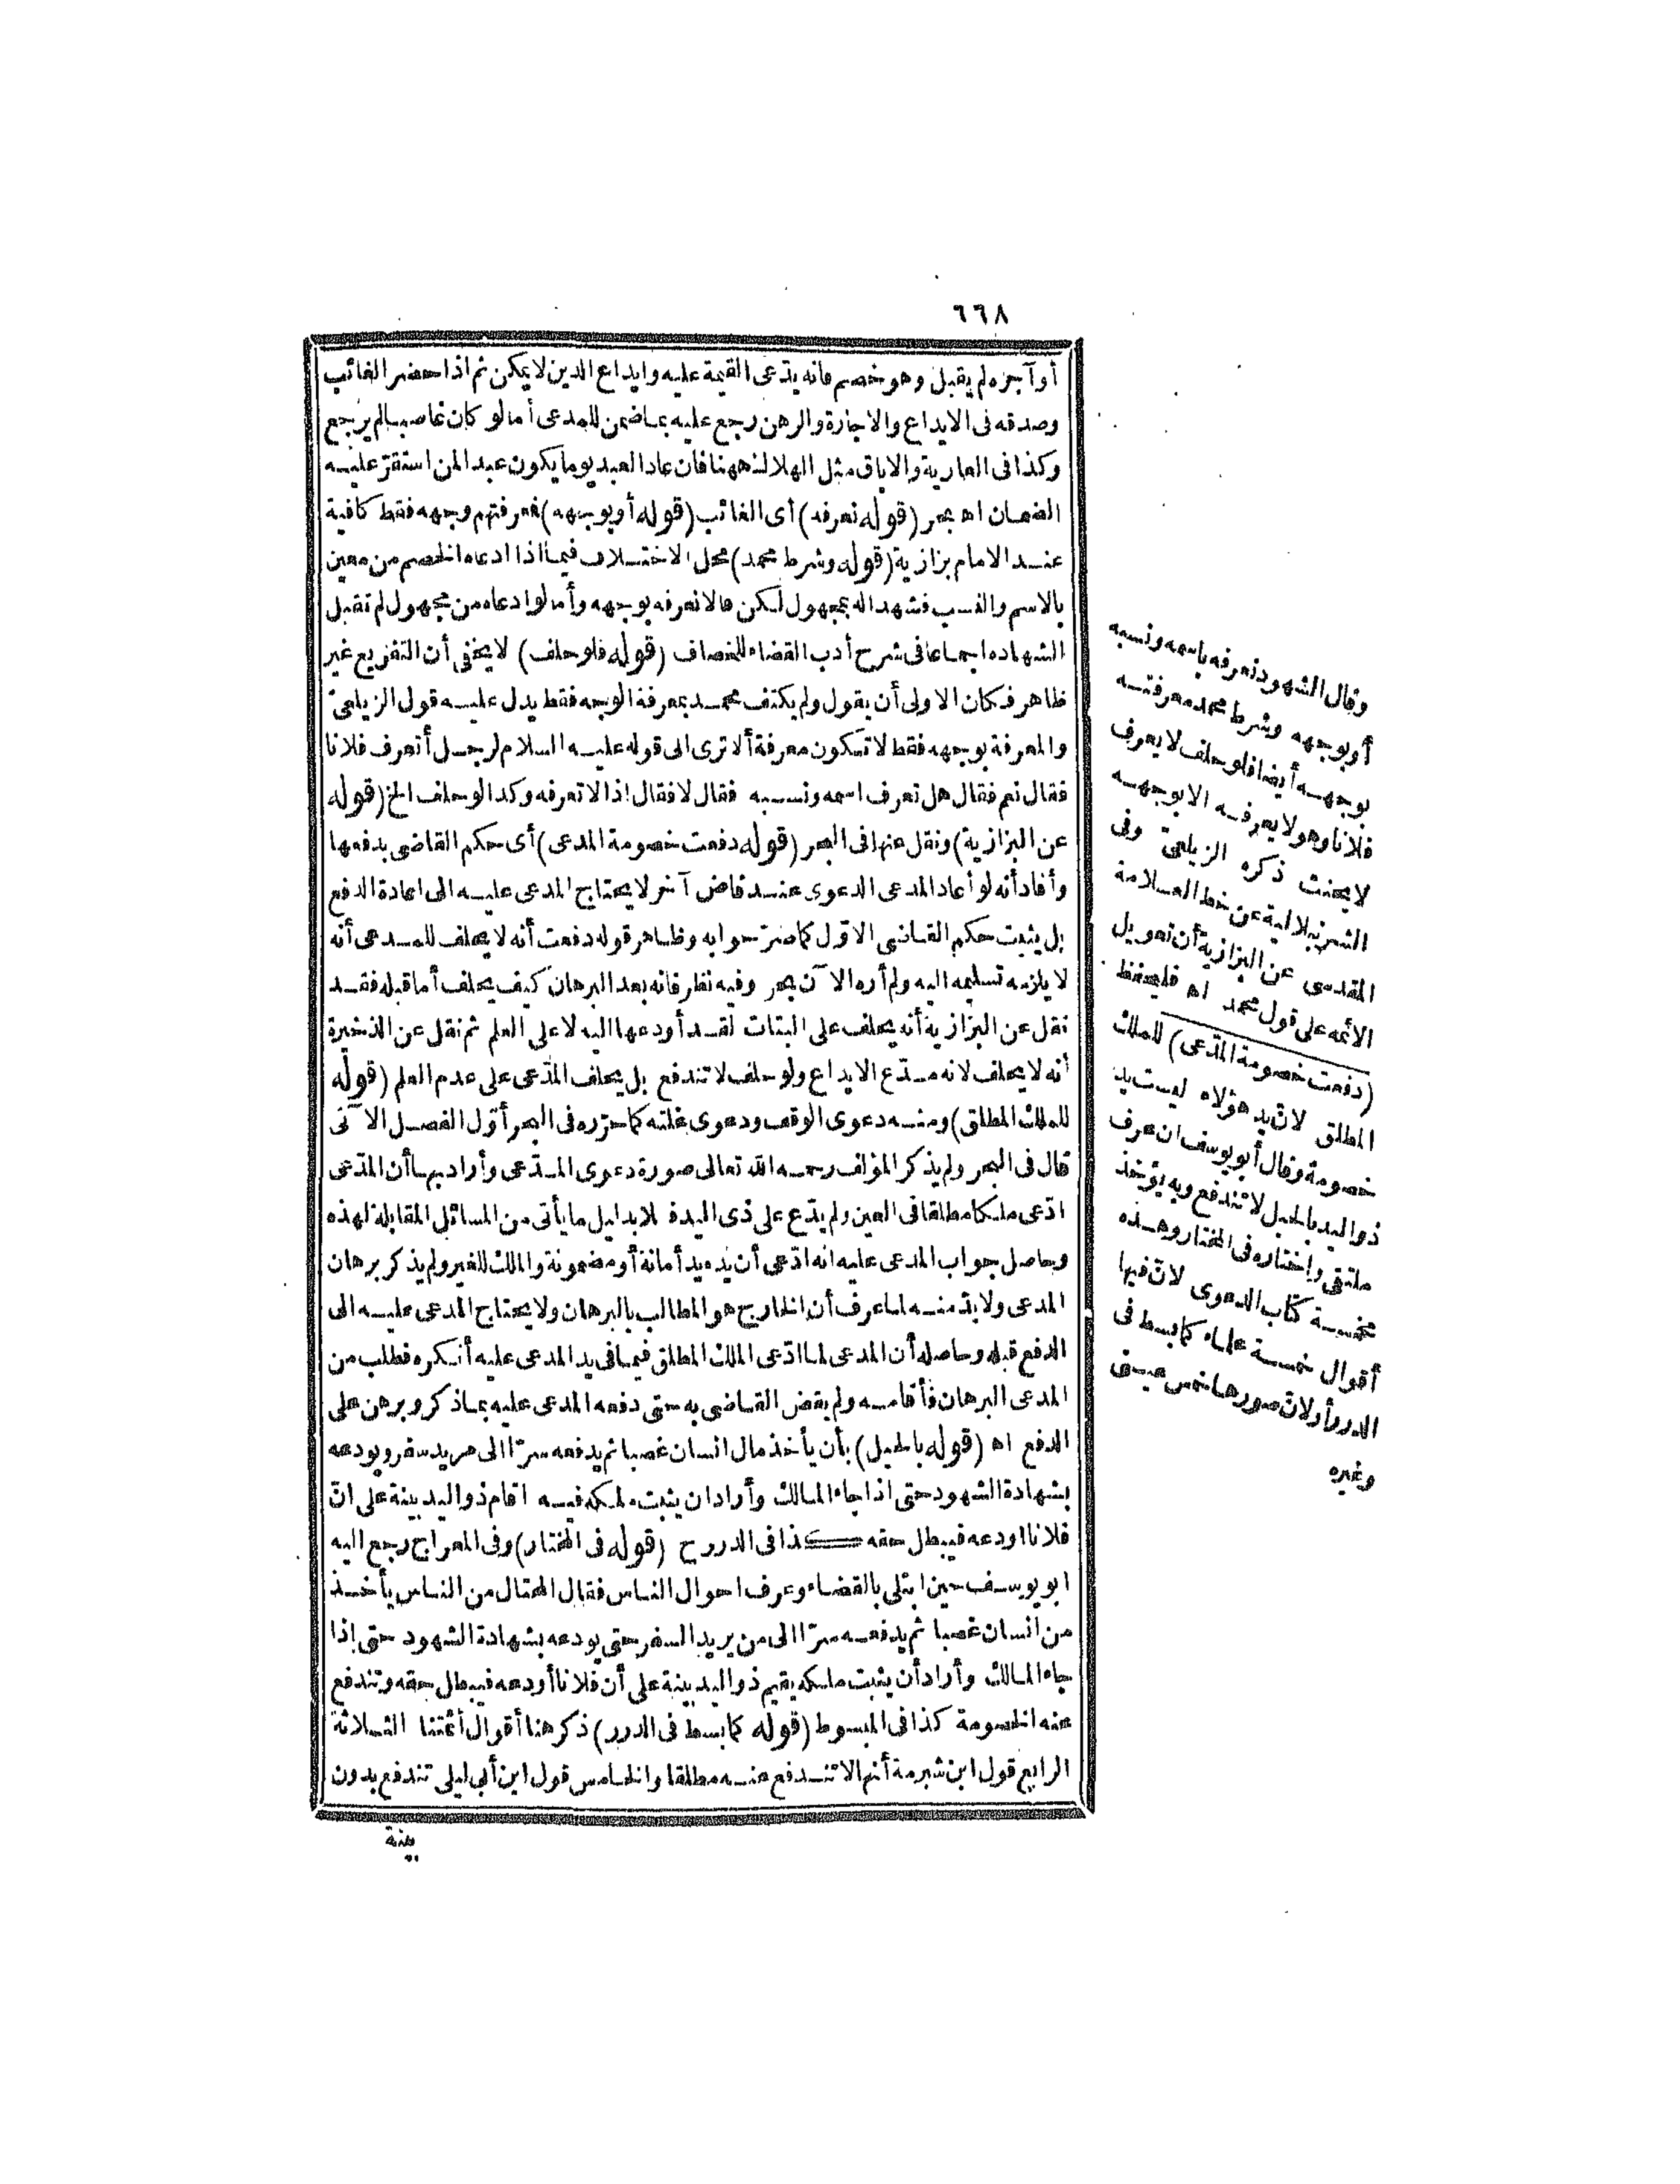 ٦٦٨
أو آجره لم يقبل وهو خصم فانه يدّعى القيمة عليه وايداع الدين لا يمكن ثم اذا حضر الغائب
وصدقه فى الايداع والاجارة والرهن رجع عليه بما ضمن للمدعى أما لو كان غاصبا لم يرجع
وكذا فى العارية والاباق مثل الهلاك ههنا فان عاد العبد يوما يكون عبدا لمن استقرّ عليه
الضمان اه بحر (قوله نعرفه) أى الغائب (قوله أو بوجهه) فمعرفتهم وجهه فقط كافية
عند الامام بزازية (قوله وشرط محمد) محل الاختلاف فيما اذا ادعاه الخصم من معين
بالاسم والنسب فشهدا له بمجهول لكن قالا نعرفه بوجهه وأما لو ادعاه من مجهول لم تقبل
الشهادة اجماعا فى شرح أدب القضاء للخصاف (قوله فلو حلف) لا يخفى أن التفريع غير
ظاهر فكان الاولى أن يقول ولم يكتف محمد بمعرفة الوجه فقط يدل عليه قول الزيلعىّ
والمعرفة بوجهه فقط لا تكون معرفة ألا ترى الى قوله عليه السلام لرجل أتعرف فلانا
فقال نعم فقال هل تعرف اسمه ونسبه فقال لا فقال اذا لا تعرفه وكذا لو حلف الخ (قوله
عن البزازية) ونقل عنها فى البحر (قوله دفعت خصومة المدعى) أى حكم القاضى بدفعها
وأفاد أنه لو أعاد المدعى الدعوى عند قاض آخر لا يحتاج المدعى عليه الى اعادة الدفع
بل يثبت حكم القاضى الاوّل كما صرّحوا به وظاهر قوله دفعت أنه لا يحلف للمدعى أنه
لا يلزمه تسليمه اليه ولم أره الآن بحر وفيه نظر فانه بعد البرهان كيف يحلف أما قبله فقد
نقل عن البزازية أنه يحلف على البتات لقد أودعها اليه لا على العلم ثم نقل عن الذخيرة
أنه لا يحلف لانه مدّع الايداع ولو حلف لا تندفع بل يحلف المدّعى على عدم العلم (قوله
للملك المطلق) ومنه دعوى الوقف ودعوى غلته كما حرّره فى البحر أوّل الفصل الآتى
قال فى البحر ولم يذكر المؤلف رحمه الله تعالى صورة دعوى المدّعى وأراد بها أن المدّعى
ادّعى ملكا مطلقا فى العين ولم يدّع على ذى اليد فعلا بدليل ما يأتى من المسائل المقابلة لهذه
وحاصل جواب المدعى عليه انه ادّعى أن يده يد أمانة أو مضمونة والملك للغير ولم يذكر برهان
المدعى ولا بدّ منه لما عرف أن الخارج هو المطالب بالبرهان ولا يحتاج المدعى عليه الى
الدفع قبله وحاصله أن المدعى لما ادّعى الملك المطلق فيما فى يد المدعى عليه أنكره فطلب من
المدعى البرهان فأقامه ولم يقض القاضى به حتى دفعه المدعى عليه بما ذكر وبرهن على
الدفع اه (قوله بالحيل) بأن يأخذ مال انسان غصبا ثم يدفعه سرّا الى مريد سفر ويودعه
بشهادة الشهود حتى اذا جاء المالك وأراد ان يثبت ملكه فيه اقام ذو اليد بينة على انّ
فلانا اودعه فيبطل حقه كذا فى الدرر ح (قوله فى المختار) وفى المعراج رجع اليه
ابو يوسف حين ابتلى بالقضاء وعرف احوال الناس فقال المحتال من الناس يأخذ
من انسان غصبا ثم يدفعه سرّا الى من يريد السفر حتى يودعه بشهادة الشهود حتى إذا
جاء المالك وأراد أن يثبت ملكه يقيم ذو اليد بينة على أن فلانا أودعه فيبطل حقه وتندفع
عنه الخصومة كذا فى المبسوط (قوله كما بسط فى الدرر) ذكر هنا أقوال أئمتنا الثلاثة
الرابع قول ابن شبرمة أنها لا تندفع عنه مطلقا والخامس قول ابن أبى ليلى تندفع بدون
بينة
وقال الشهود نعرفه باسمه ونسبه
أو بوجهه وشرط محمد معرفته
بوجهه أيضا فلو حلف لا يعرف
فلانا وهو لا يعرفه الا بوجهه
لا يحنث ذكره الزيلعىّ وفى
الشرنبلالية عن خط العلامة
المقدسى عن البزازية أن تعويل
الائمة على قول محمد اه فليحفظ
(دفعت خصومة المدّعى) للملك
المطلق لانّ يد هؤلاء ليست يد
خصومة وقال أبو يوسف ان عرف
ذو اليد بالحيل لا تندفع وبه يؤخذ
ملتقى واختاره فى المختار وهذه
مخمسة كتاب الدعوى لانّ فيها
أقوال خمسة علماء كما بسط فى
الدرر أو لانّ صورها خمس عينى
وغيره